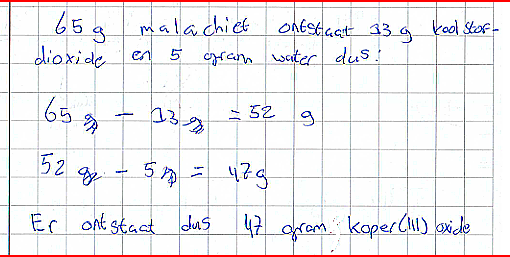 65 g malachiet ontstaat 13 g koolstof-
dioxide en 5 gram water dus:
65 g - 13 g = 52 g
52 g - 5 g = 47g
Er ontstaat dus 47 gram koper(III) oxide